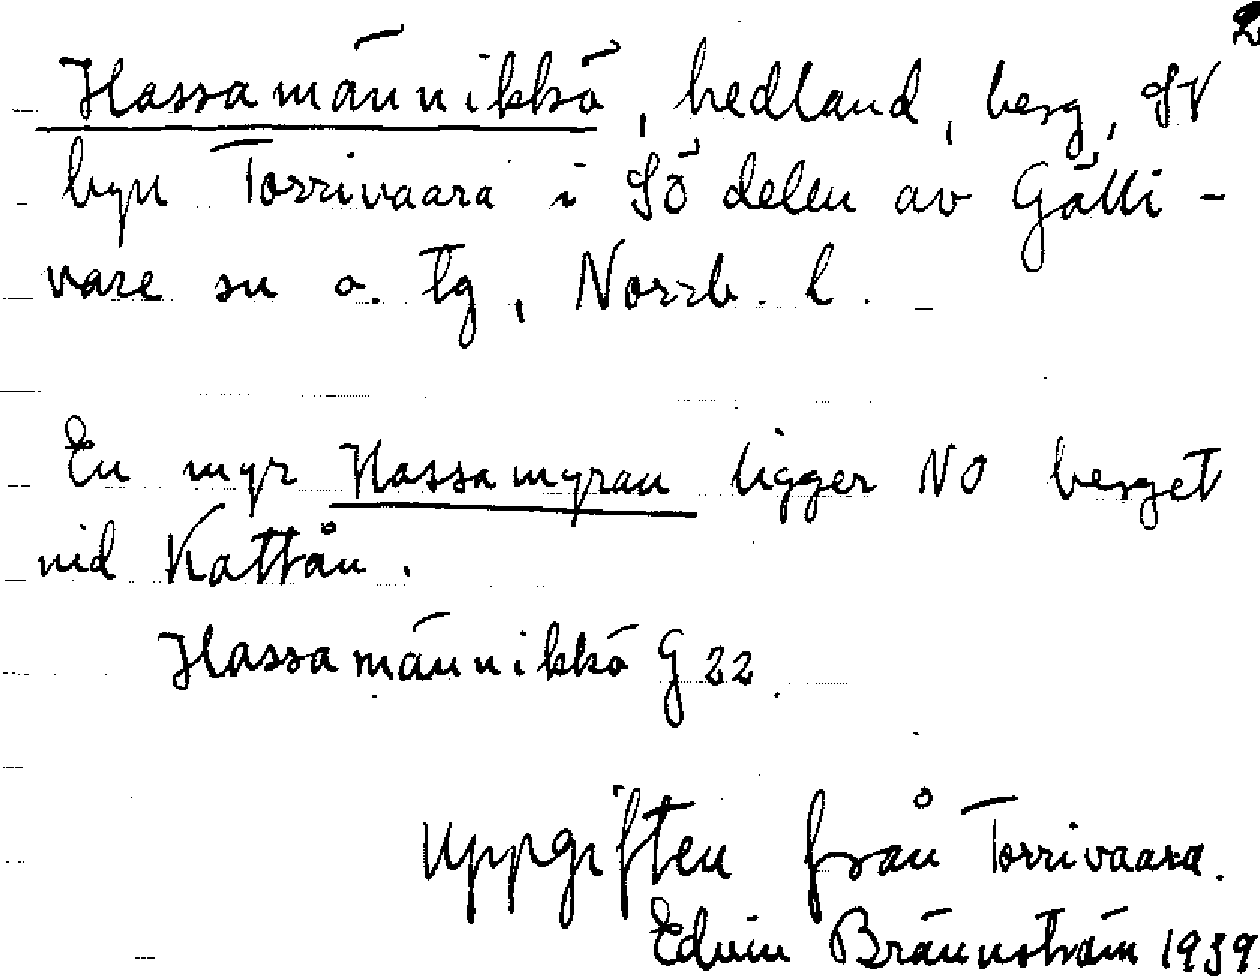 2
Hassamännikkö, hedland, berg, SV
byn Torrivaara i SÖ delen av Gälli-
vare sn o. tg, Norrb. l.
En myr Hassamyran ligger NO berget
vid Kattån.
Hassamännikkö G 22.
Uppgiften från Torrivaara.
Edvin Brännström 1939